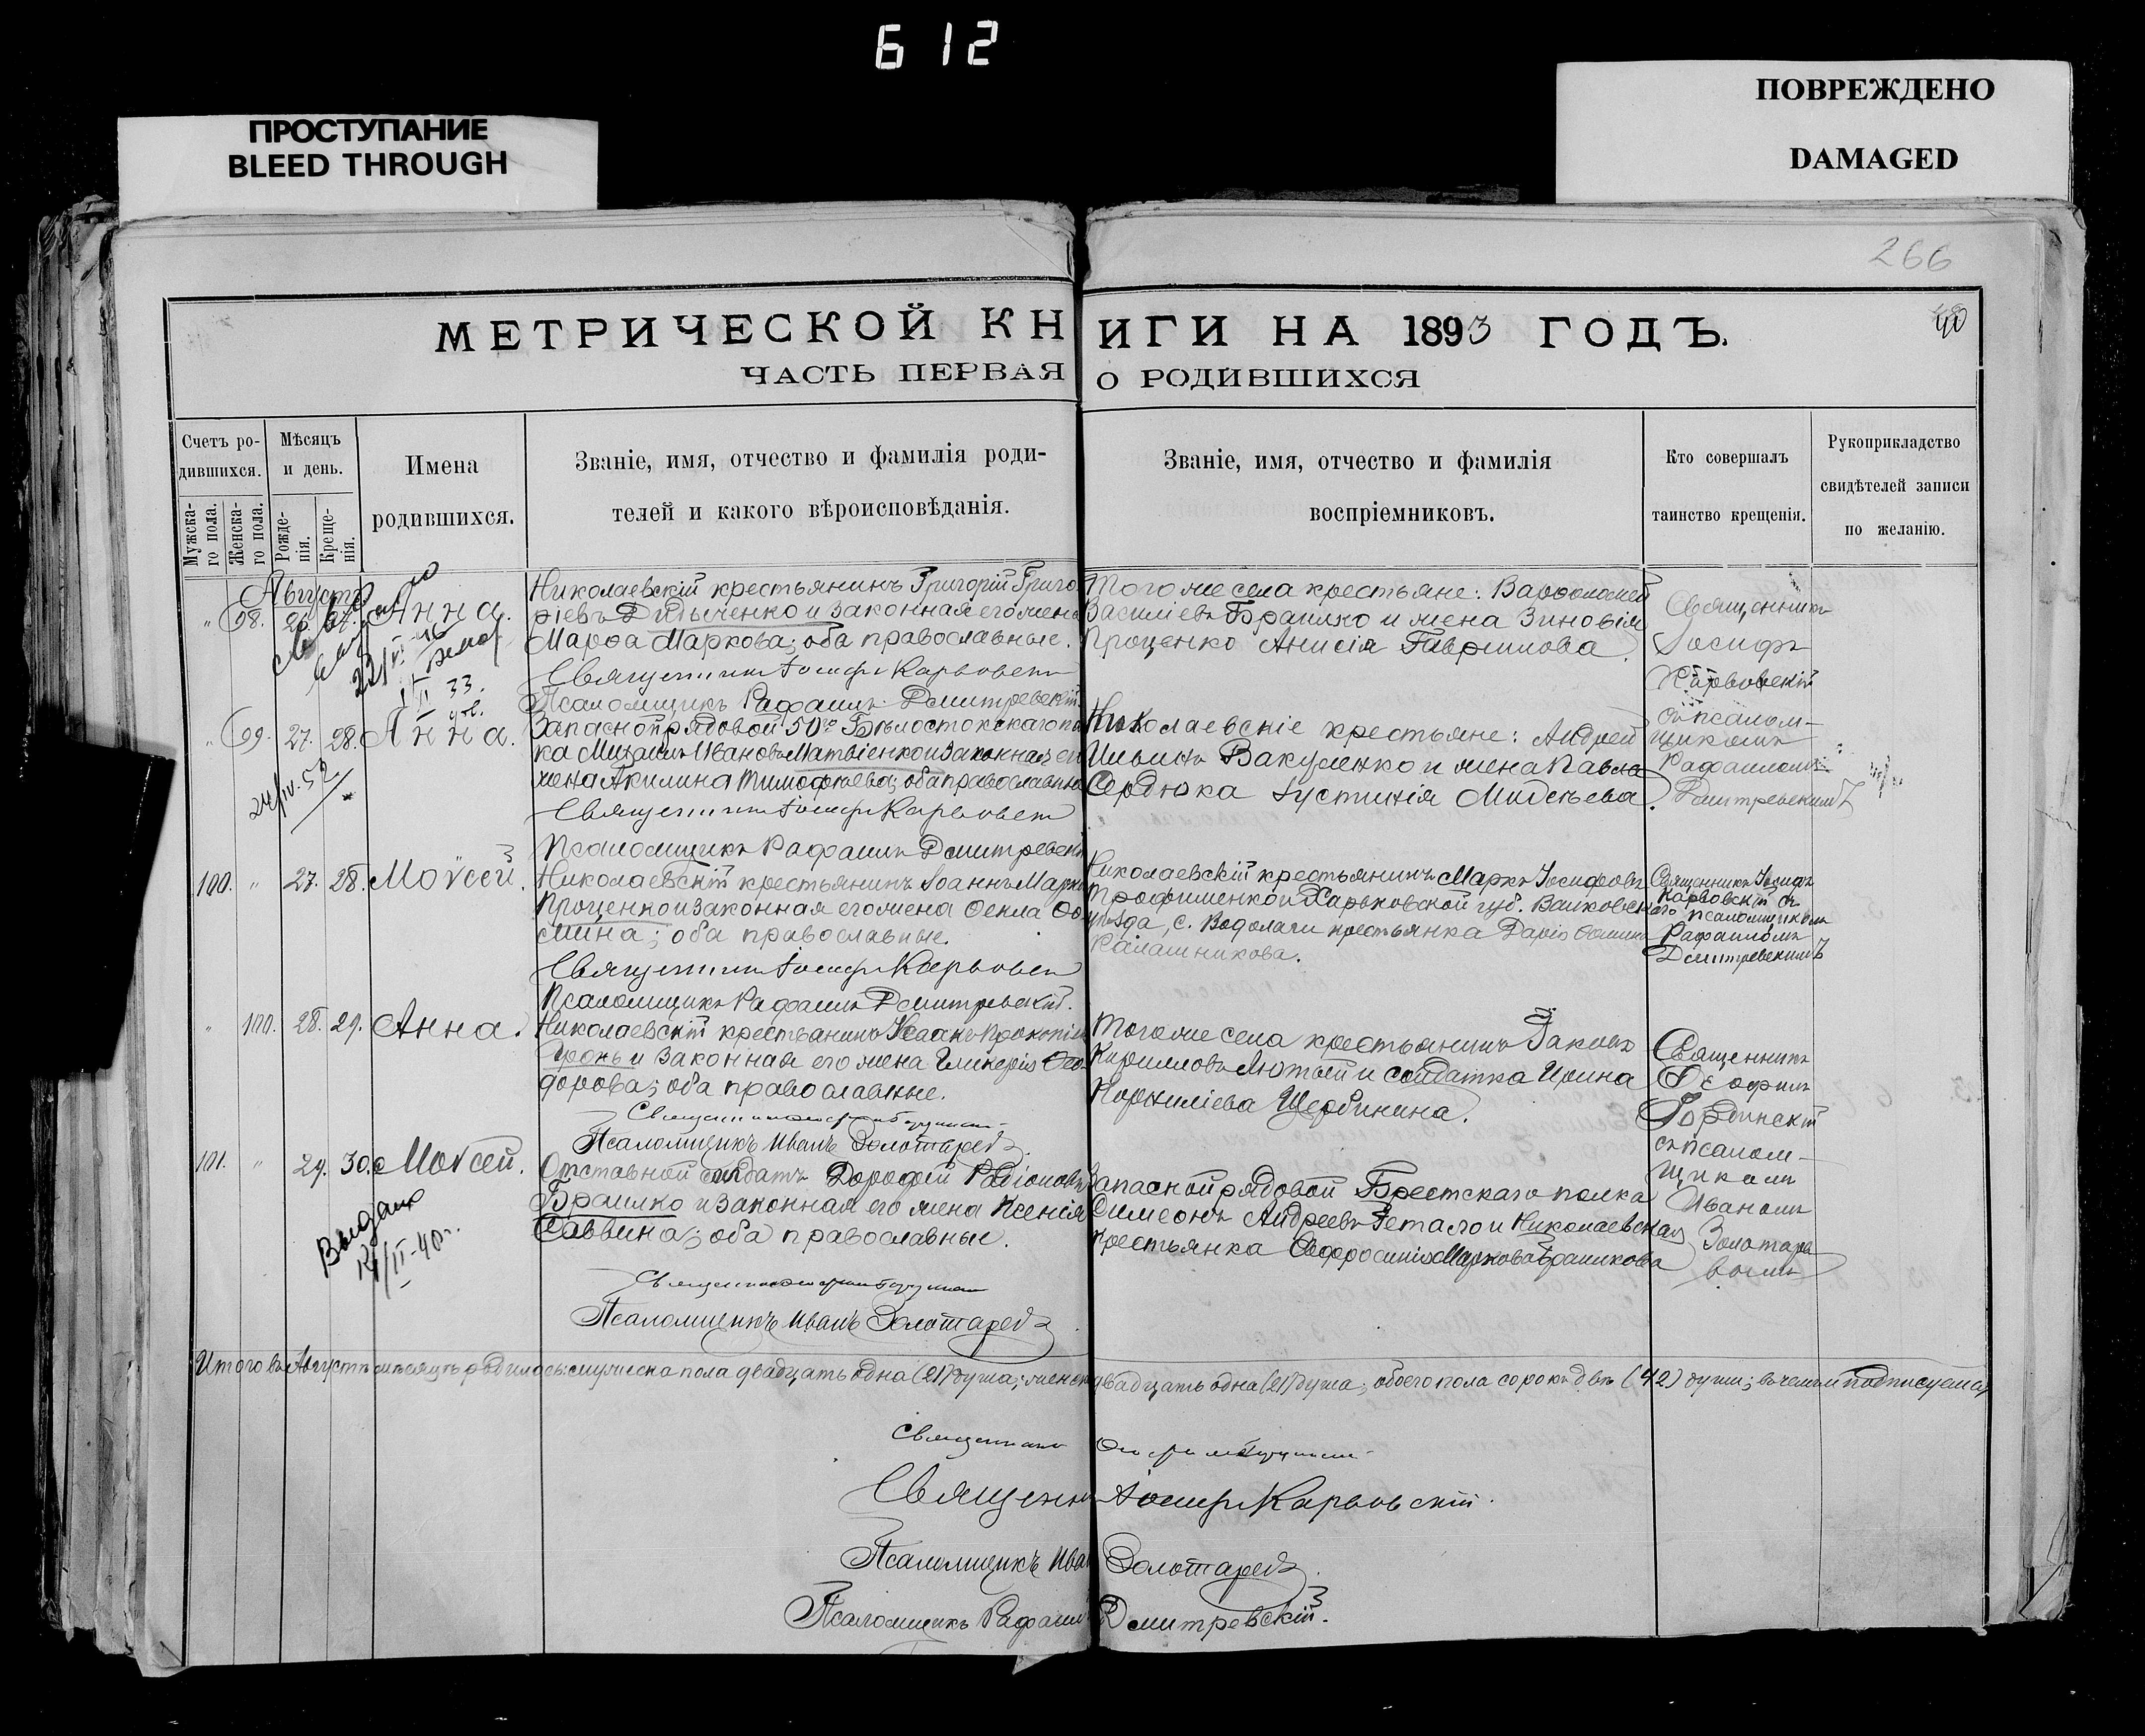 612
ПРОСТУПАНИЕ
BLEED THROUGH
ПОВРЕЖДЕНО
DAMAGED
266
40
МЕТРИЧЕСКОЙ КНИГИ НА 1893 ГОДЪ.
ЧАСТЬ ПЕРВАЯ О РОДИВШИХСЯ
Счетъ ро-
дившихся.
Мужска-
го пола.
Женска-
го пола.
Мѣсяцъ
и день.
Рожде-
нія.
Креще-
нія.
Имена
родившихся.
Званіе, имя, отчество и фамилія роди-
телей и какого вѣроисповѣданія.
Званіе, имя, отчество и фамилія
воспріемниковъ.
Кто совершалъ
таинство крещенія.
Рукоприкладство
свидѣтелей записи
по желанію.
Августъ
" 98. 26. 27. Анна.
Николаевскій крестьянинъ Григорій Григо
ріевъ Дидыченко и законная его жена
Марѳа Маркова; оба православные.
Священникъ Іосифъ Карвовскій
Псаломщикъ Рафаилъ Дмитревскій.
Того же села крестьяне: Варѳоломей
Василіевъ Брашко и жена Зиновія
Проценко Анисія Гавриилова.
Священникъ
Іосифъ
Карвовскій
съ псалом-
щикомъ
Рафаиломъ
Дмитревскимъ
33.
" 99. 27. 28. Анна.
24/IV.52
Запасной рядовой 50го Бѣлостокскаго пол
ка Михаилъ Ивановъ Матвіенко и законная его
жена Акилина Тимофѣева; оба православные
Священникъ Іосифъ Карвовскій
Псаломщикъ Рафаилъ Дмитревскій
Николаевскіе крестьяне: Андрей
Ильинъ Вакуленко и жена Павла
Сердюка Іустинія Мидѣева.
100. " 27. 28. Моѵсей.
Николаевскій крестьянинъ Іоаннъ Марко
Проценко и законная его жена Ѳекла Ѳо
мина; оба православные.
Священникъ Іосифъ Карвовскій
Псаломщикъ Рафаилъ Дмитревскій.
Николаевскій крестьянинъ Маркъ Іосифовъ
Трофименко и Харьковской губ. Валковск
уѣзда, с. Водолаги крестьянка Дарія Ѳомина
Калашникова.
Священникъ Іосифъ
Карвовскій съ
псаломщикомъ
Рафаиломъ
Дмитревскимъ
" 100. 28. 29. Анна.
Николаевскій крестьянинъ Исаакъ Прокопіевъ
и законная его жена Гликерія Ѳео-
дорова; оба православные.
Псаломщикъ Иванъ Золотаревъ
Того же села крестьянинъ Іаковъ
Кирилловъ Лютый и солдатка Ирина
Корниліева Щербинина.
Священникъ
Ѳеофилъ
съ псалом-
щикомъ
Иваномъ
Золотаре
вымъ
101. " 29. 30. Моѵсей.
Выдано
14/II-40г.
Отставной солдатъ Дороѳей Родіоновъ
Брашко и законная его жена Ксенія
Саввина; оба православные.
Псаломщикъ Иванъ Золотаревъ
Запасной рядовой Брестскаго полка
Симеонъ Андреевъ Гетало и Николаевская
крестьянка Евфросинія Маркова Брашкова
Итого въ Августѣ мѣсяцѣ родилось: мужеска пола двадцать одна (21) душа; женск двадцать одна (21) душа; обоего пола сорокъ двѣ (42) души; въ чемъ и подписуемся
Священникъ
Священникъ Іосифъ Карвовскій.
Псаломщикъ Иванъ Золотаревъ
Псаломщикъ Рафаилъ Дмитревскій.